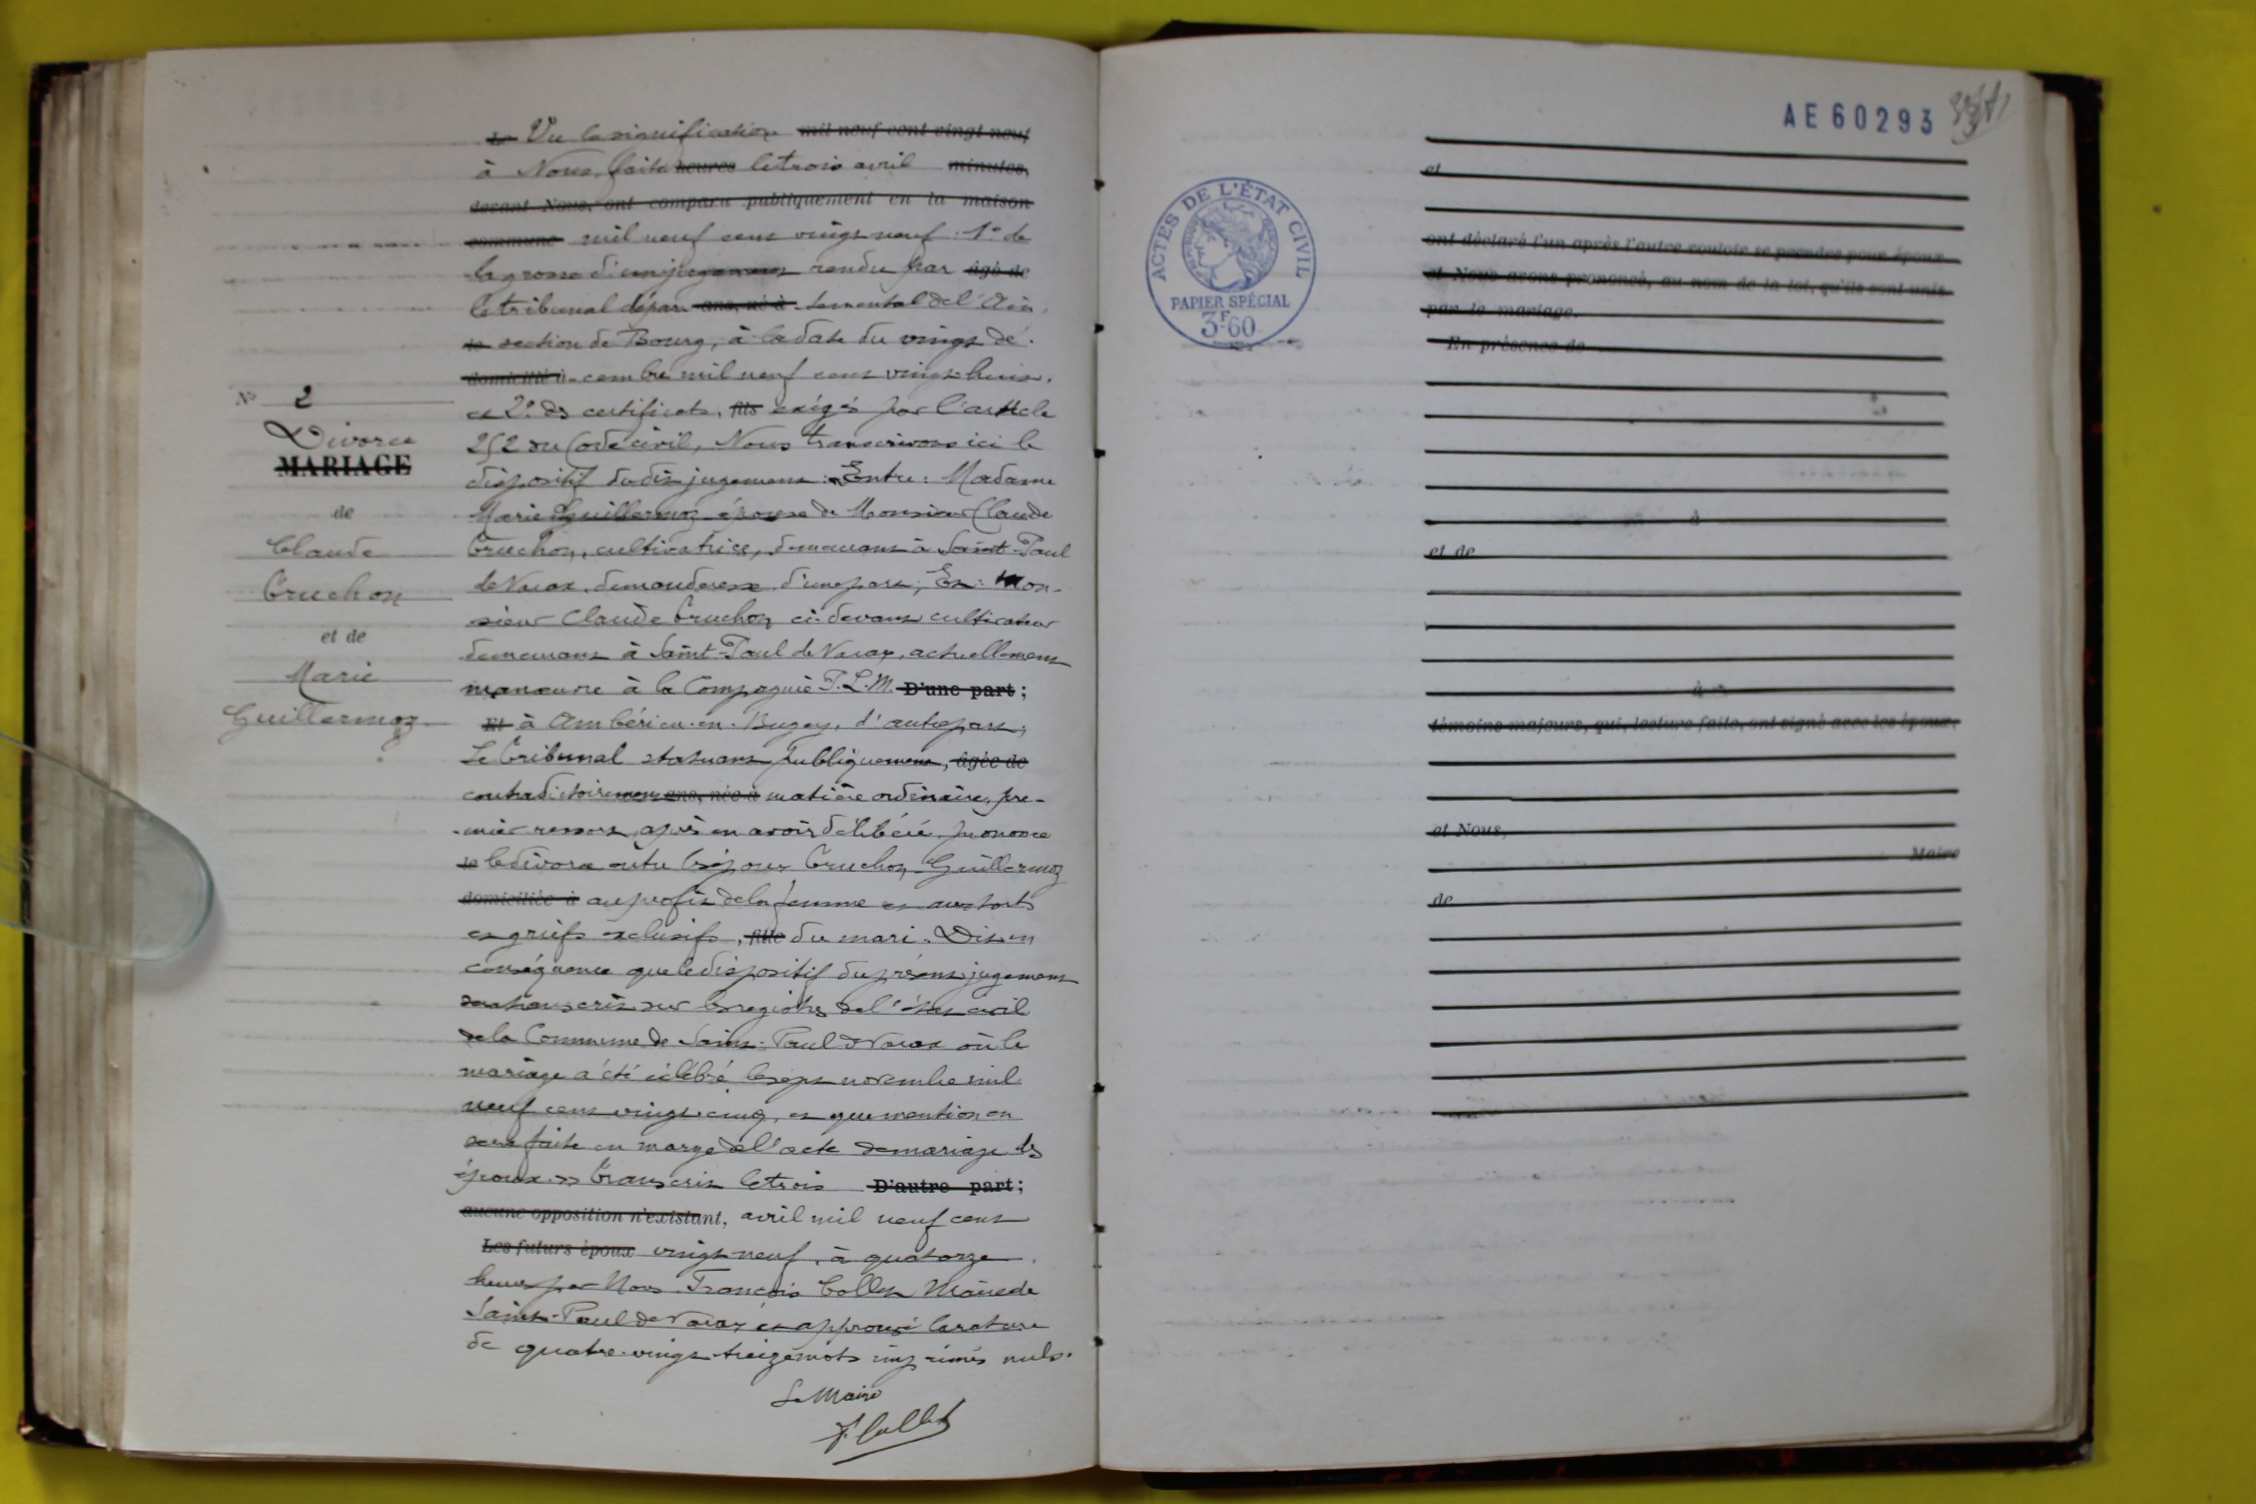 Nº 2
Divorce
MARIAGE
de
Claude
Cruchon
et de
Marie
Guillermoz
Le Vu la signification mil neuf cent vingt neuf
à Nous faite heures le trois avril minutes,
devant Nous, ont comparu publiquement en la maison
commune mil neuf cent vingt neuf : 1º de
la grosse d'un jugement rendu par âgé de
le tribunal dépar- ans, né à temental de l'Ain,
le section de Bourg, à la date du vingt dé-
domicilié à cembre mil neuf cent vingt huit.
et 2º des certificats, fils exigés par l'article
252 du Code civil, Nous transcrivons ici le
dispositif dudit jugement : Entre : Madame
Marie Guillermoz épouse de Monsieur Claude
Cruchon, cultivatrice, demeurant à Saint-Paul
de Varax, demanderesse d'une part ; Et : Mon-
sieur Claude Cruchon, ci-devant cultivateur
demeurant à Saint-Paul de Varax, actuellement
manœuvre à la Compagnie P. L. M. D'une part ;
Et à Ambérieu-en-Bugey, d'autre part ;
Le Tribunal statuant publiquement, âgée de
contradictoirement ans, née à matière ordinaire, pre-
-mier ressort, après en avoir délibéré, prononce
le le divorce entre les époux Cruchon-Guillermoz
domiciliée à au profit de la femme et aux torts
et griefs exclusifs, fille du mari. Dit en
conséquence que le dispositif du présent jugement
sera transcrit sur les registres de l'état civil
de la Commune de Saint-Paul de Varax où le
mariage a été célébré le sept novembre mil
neuf cent vingt-cinq, et que mention en
sera faite en marge de l'acte de mariage des
époux. » Transcrit le trois D'autre part ;
aucune opposition n'existant, avril mil neuf cent
Les futurs époux vingt-neuf, à quatorze
heures par Nous François Collet Maire de
Saint-Paul de Varax et approuvé la rature
de quatre-vingt-treize mots imprimés nuls.
Le Maire
F. Collet
AE 60293
ACTES DE L'ÉTAT CIVIL
PAPIER SPÉCIAL
3F.60
et
ont déclaré l'un après l'autre vouloir se prendre pour époux
et Nous avons prononcé, au nom de la loi, qu'ils sont unis
par le mariage.
En présence de
à
et de
à
témoins majeurs, qui, lecture faite, ont signé avec les époux
et Nous,
Maire
de